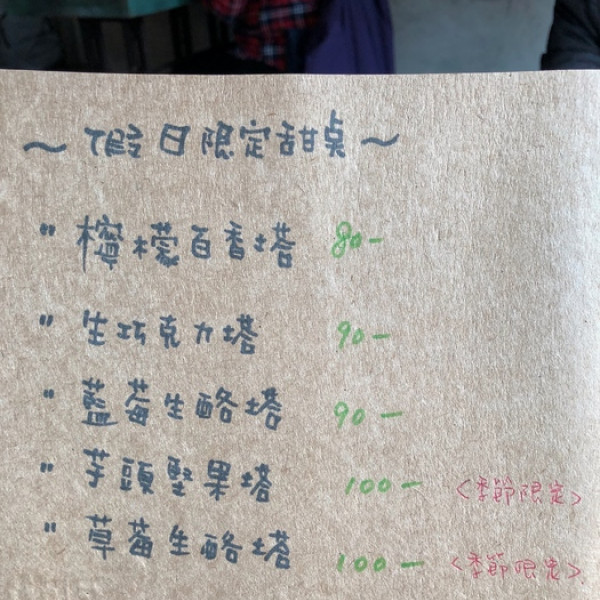 ～假日限定甜桌～
" 檸檬百香塔 80-
" 生巧克力塔 90-
" 藍莓生酪塔 90-
" 芋頭堅果塔 100- <季節限定>
" 草莓生酪塔 100- <季節限定>